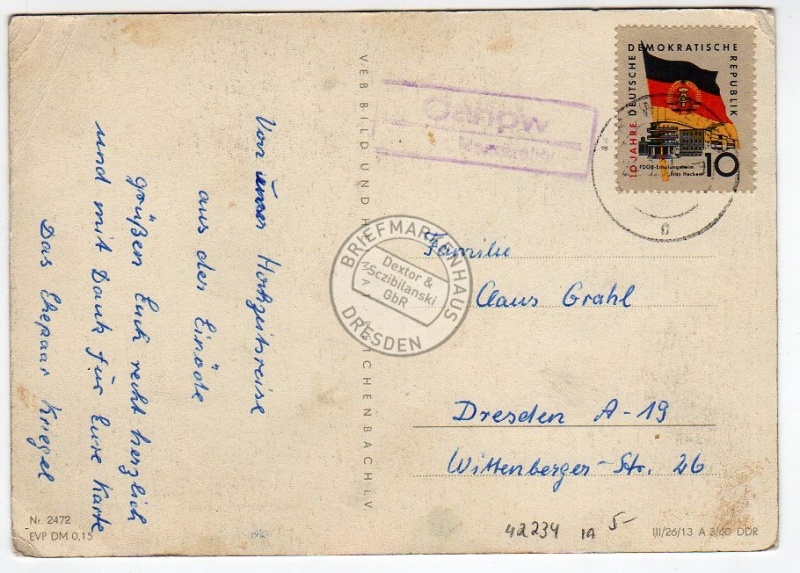 Von unser Hochzeitsreise
aus der Einöde
grüßen Euch recht herzlich
und mit Dank für Eure Karte
Das Ehepaar Kriegel
Nr. 2472
EVP DM 0,15
VEB BILD UND H
REICHENBACH I.V.
BRIEFMARKENHAUS
Dextor &
Sczibilanski
GbR
DRESDEN
10 JAHRE DEUTSCHE DEMOKRATISCHE REPUBLIK
FDGB-Erholungsheim
Fritz Heckert
10
Familie
Claus Grahl
Dresden A-19
Wittenberger-Str. 26
42234 1A 5-
III/26/13 A 3/60 DDR